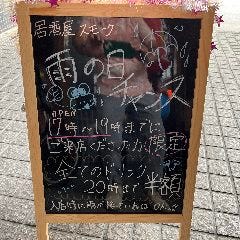 居酒屋スモーク
雨の日
チャンス
OPEN
17時～19時までに
ご来店くださった方限定
全てのドリンク
22時まで半額
入店時に雨が降っていれば OK!!